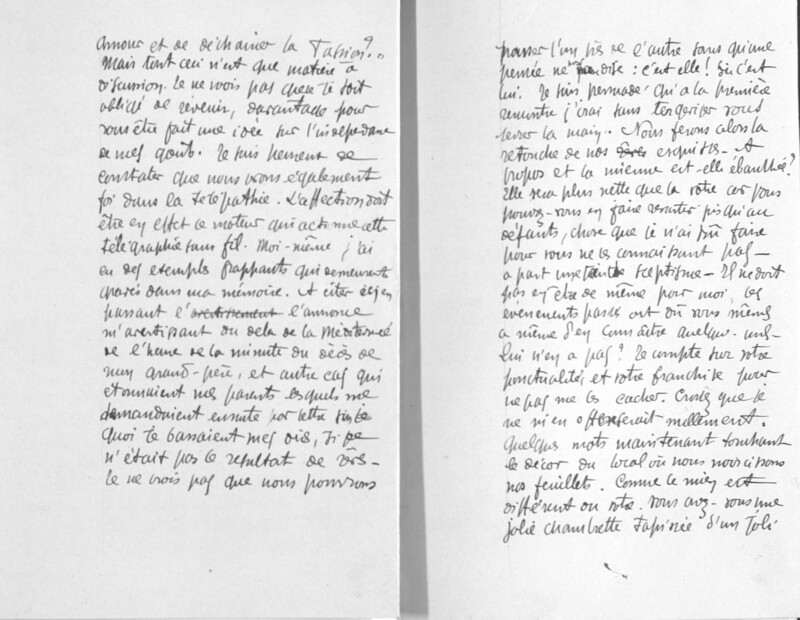 Amour et de déchaîner la Passion?..
Mais tout ceci n'est que matière à
discussion. Je ne vois pas que je soit
obligé de revenir, davantage pour
vous être fait une idée sur l'indépendance
de mes goûts. Je suis heureux de
constater que nous avons également
foi dans la télépathie. L'affection doit
être en effet le moteur qui actionne cette
télégraphie sans fil. Moi-même, j'ai
eu des exemples frappants qui demeurent
gravés dans ma mémoire. A citer
passant l'avertissement l'annonce
m'avertissant du delà de la Méditerranée
de l'heure de la minute du décès de
mon grand-père, et autre cas qui
étonnaient mes parents lesquels me
demandaient ensuite par lettre sur
quoi je basaient mes dis, si je
n'était pas le résultat de
Je ne crois pas que nous pourrons
passer l'un près de l'autre sans qu'une
pensée ne nous dise : c'est elle! où c'est
lui. Je suis persuadé qu'à la première
rencontre j'irai sans tergiverser vous
serrer la main. Nous ferons alors la
retouche de nos esquisses. A
propos et la mienne est-elle ébauchée?
Elle sera plus nette que la votre car vous
pouvez-vous en faire ressortir jusqu'au
défauts, chose que je n'ai pû faire
pour vous ne les connaissant pas_
à part une sceptisme_ Il ne doit
pas en être de même pour moi, les
évènements passés ont dû vous mettre
a même d'en connaître quelques-uns_
Qui n'en a pas? Je compte sur votre
ponctualité, et votre franchise pour
ne pas me les cacher. Croyez que je
ne m'en offenserait nullement.
Quelques mots maintenant touchant
le décor du local où nous noircissons
nos feuillets. Comme le mien est
différent du votre. Vous avez-vous une
jolie chambrette tapissée d'un joli